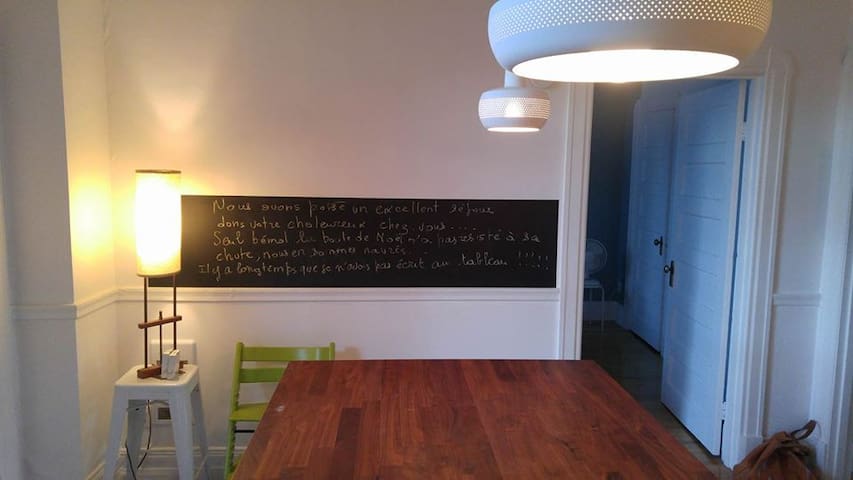 Nous avons passé un excellent séjour
dans votre chaleureux chez vous....
Seul bémol la boule de Noël n'a pas résisté à sa
chute, nous en sommes navrés
Il y a longtemps que je n'avais pas écrit au tableau !!!!!